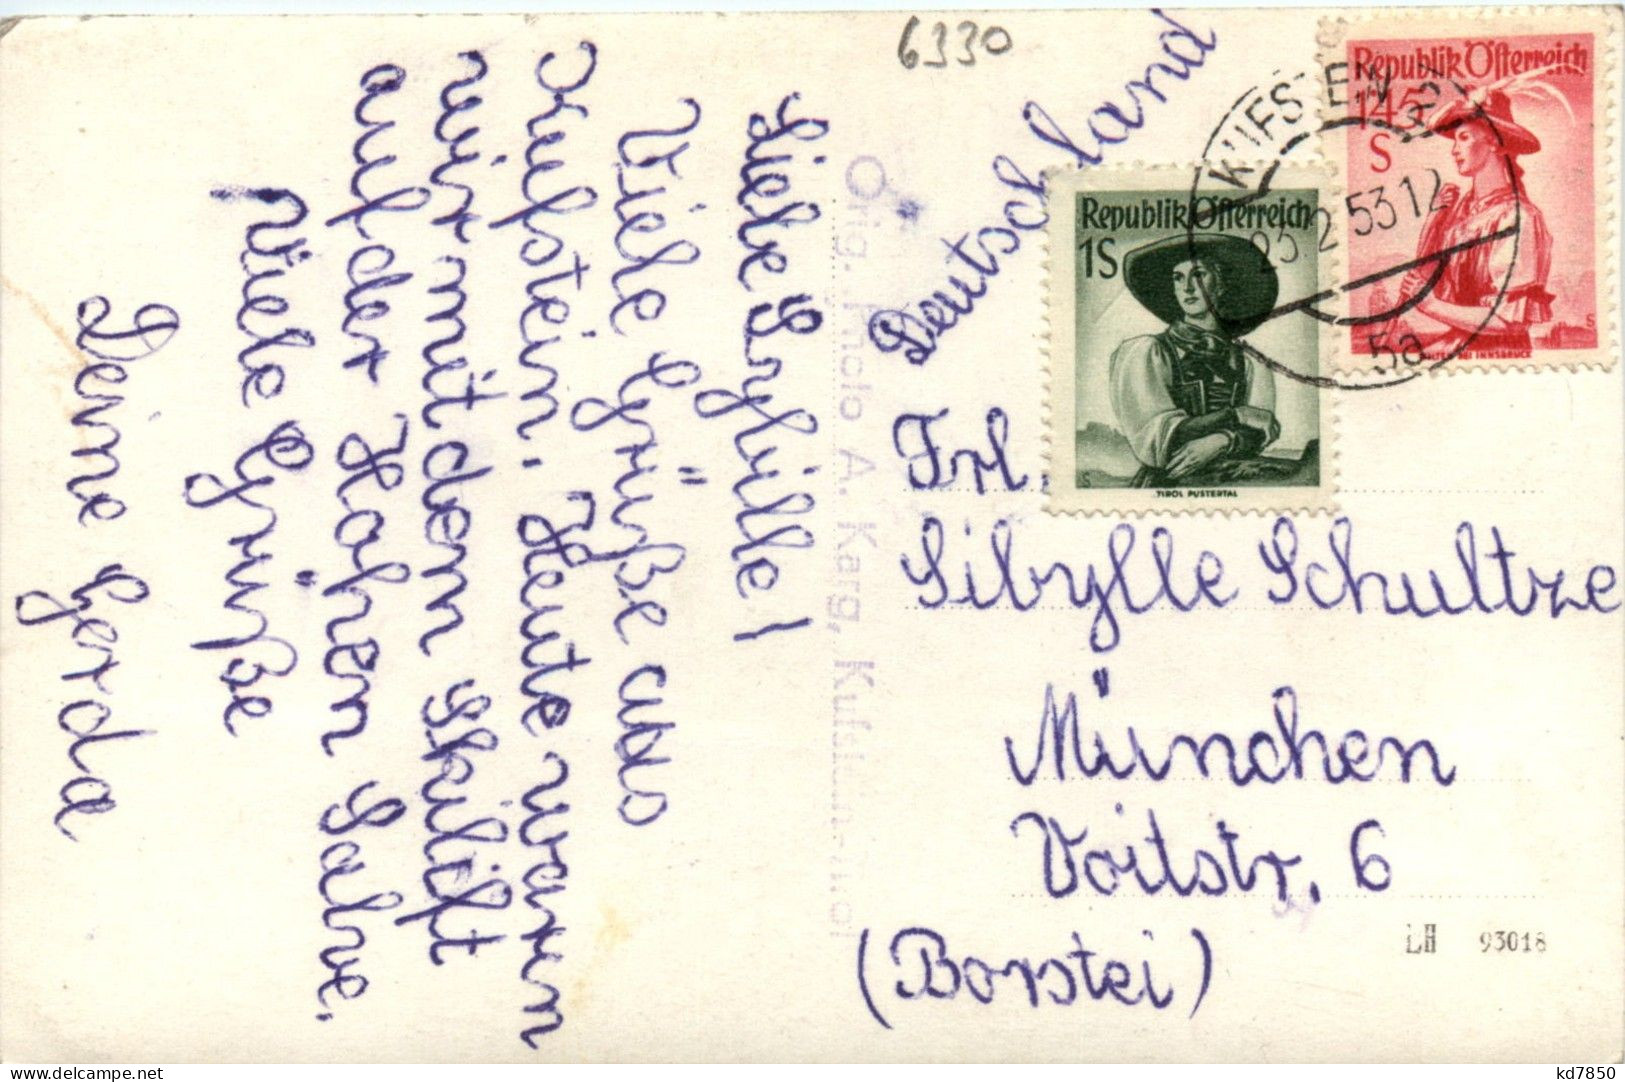 6330
Liebe Sybille!
Viele Grüße aus
Kufstein. Heute waren
wir mit dem Skilift
auf der Hohen Salve.
Viele Grüße
Deine Gerda
Orig. Photo A. Karg, Kufstein
Deutschland
Republik Österreich
1S
TIROL PUSTERTAL
Republik Österreich
1.45
S
KUFSTEIN 2
23.2.53 12
5a
Frl.
Sibylle Schultze
München
Voitstr. 6
(Borstei)
LH 93018
delcampe.net
kd7850